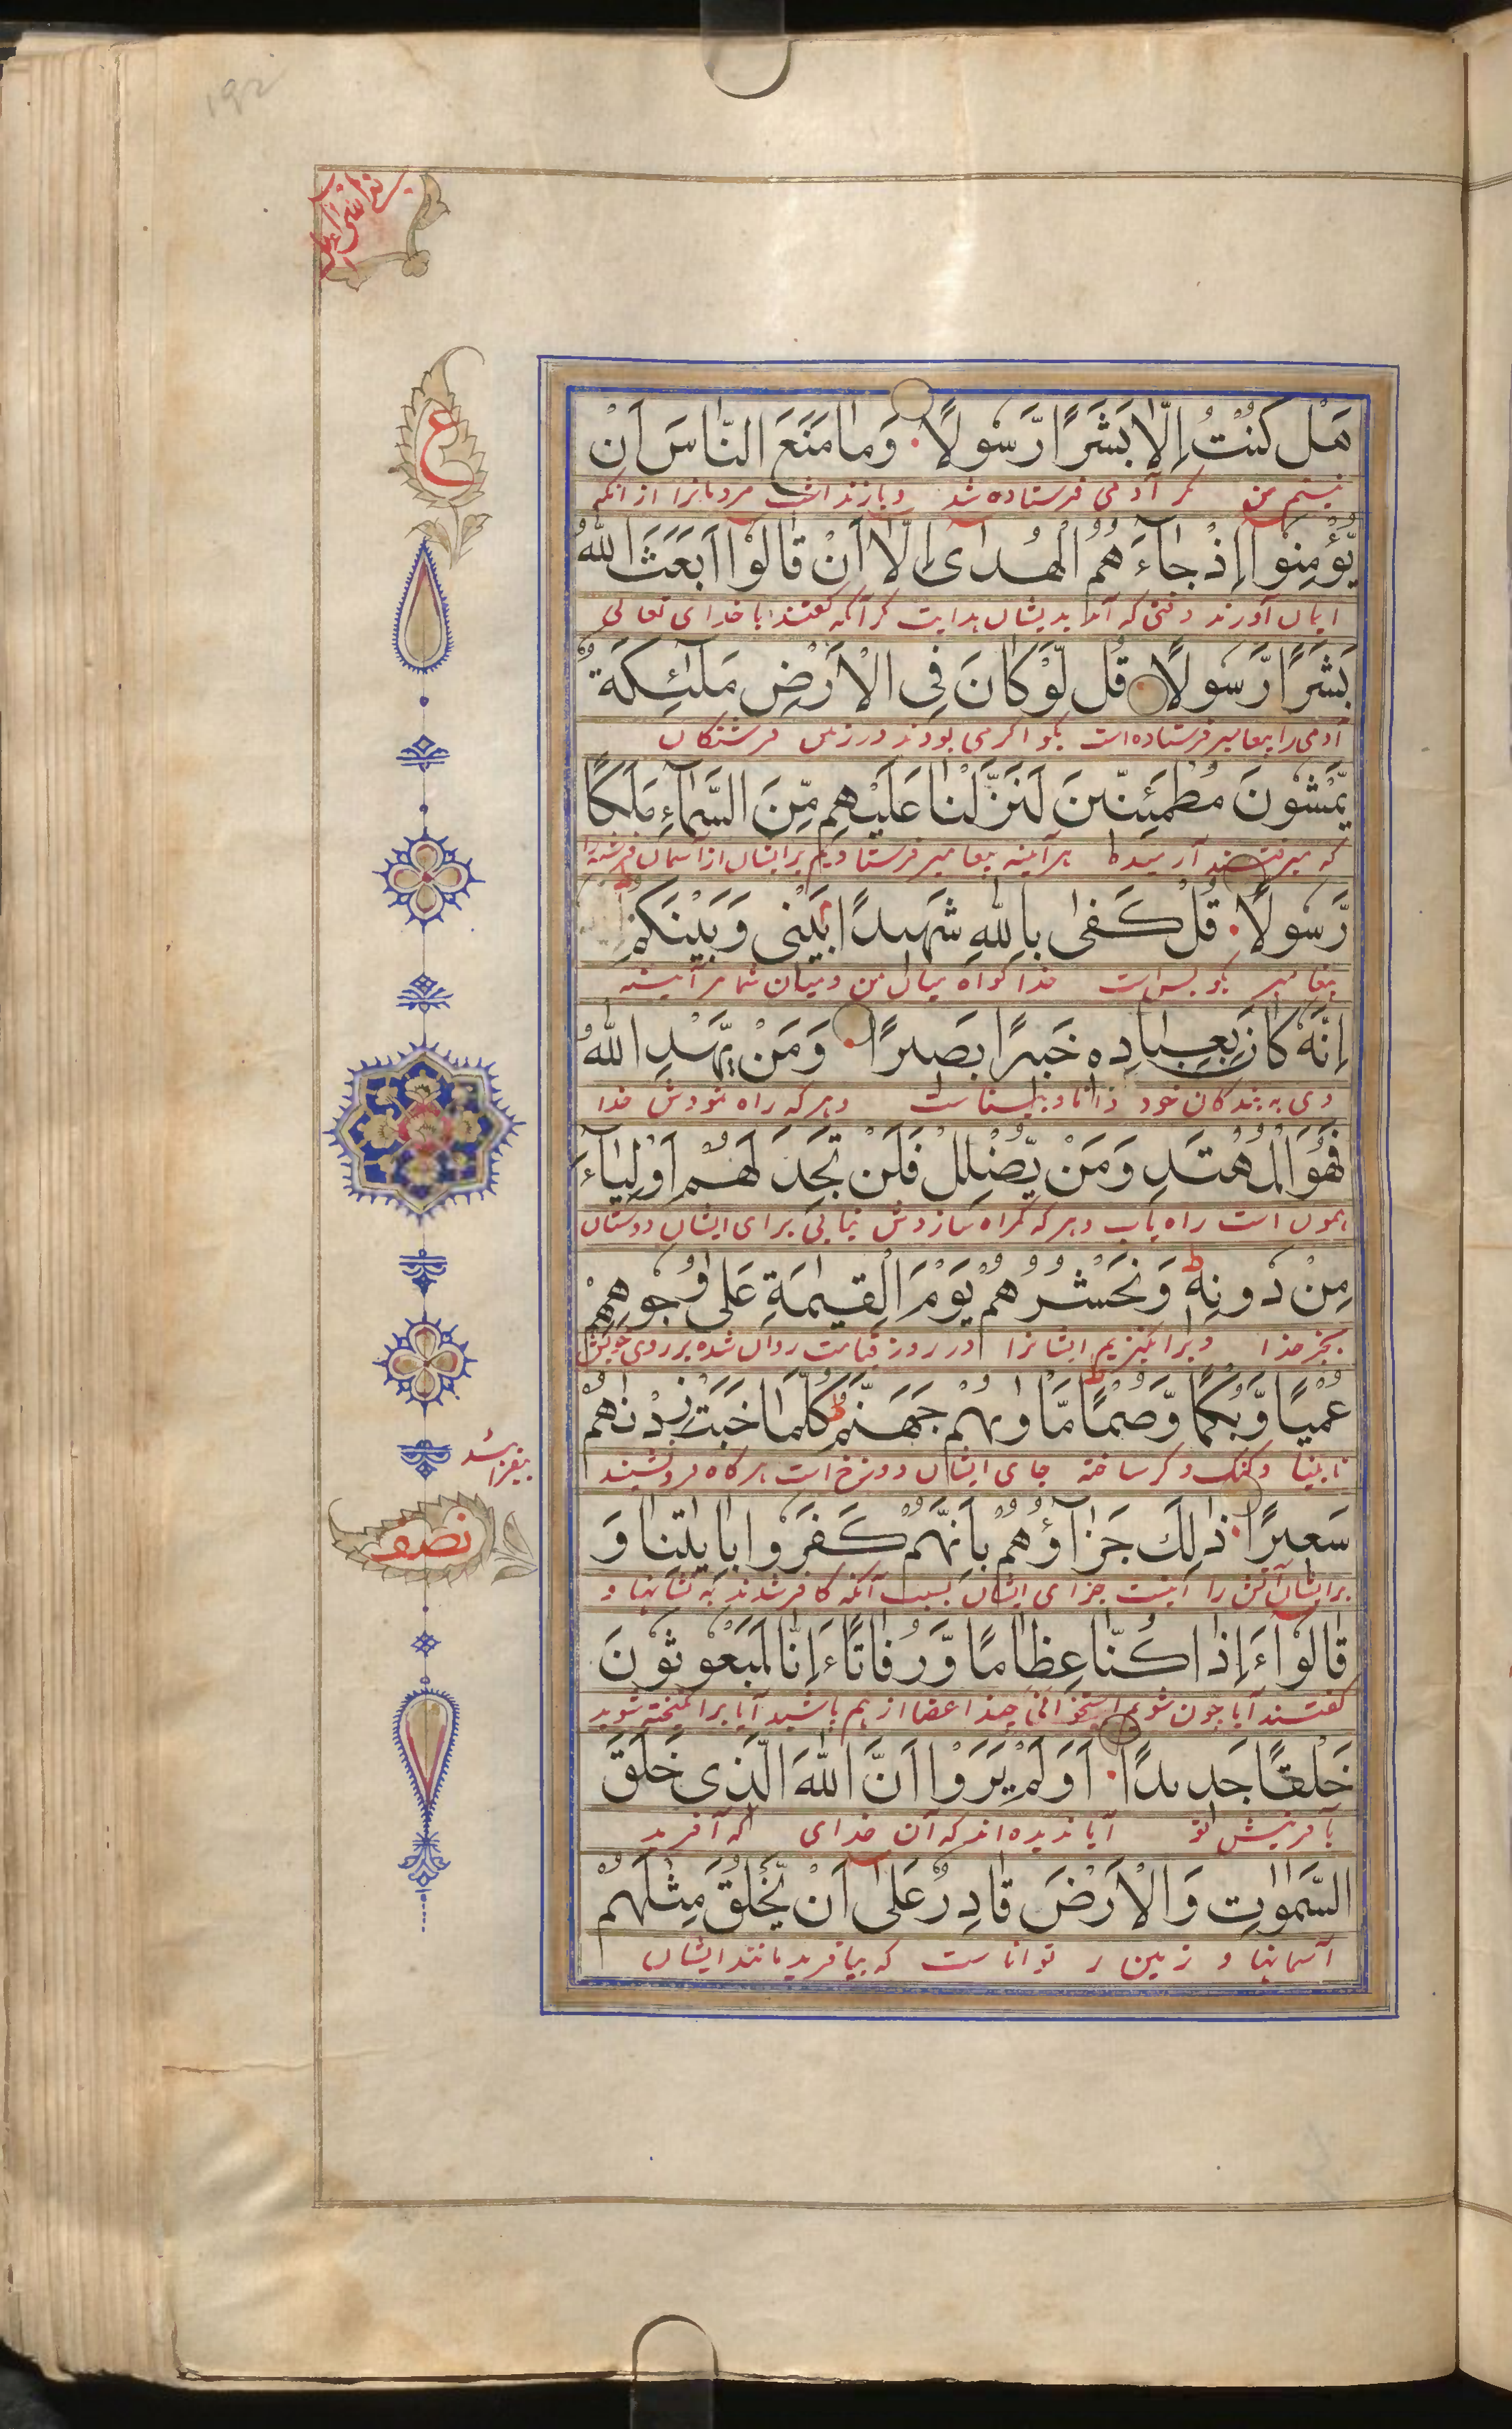 هَلْ كُنْتُ إِلَّا بَشَرًا رَّسُولًا وَمَا مَنَعَ النَّاسَ اَنْ
نیستم من مگر آدمی فرستاده شد و باز نداشت مردمانرا از انکه
يُّؤْمِنُوا إِذْ جَاءَهُمُ الْهُدٰى إِلَّا اَنْ قَالُوا اَبَعَثَ اللهُ
ایمان آورند وقتی که آمد بدیشان هدایت مگر آنکه گفتند ایا خدای تعالی
بَشَرًا رَّسُولًا قُل لَّوْ كَانَ فِي الْاَرْضِ مَلٰئِكَةٌ
آدمی را پیغامبر فرستاده است بگو اگر می بودند در زمین فرشتگان
يَّمْشُونَ مُطْمَئِنِّينَ لَنَزَّلْنَا عَلَيْهِم مِّنَ السَّمَاءِ مَلَكًا
که میرفتند آرمیده هر آینه پیغامبر فرستادیم بر ایشان از آسمان فرشته را
رَّسُولًا قُلْ كَفٰى بِاللهِ شَهِيدًا بَيْنِي وَبَيْنَكُمْ
پیغامبر بگو بس است خدا گواه میان من و میان شما هر آینه
اِنَّهٗ كَانَ بِعِبَادِهٖ خَبِيرًا بَصِيرًا وَمَنْ يَّهْدِ اللهُ
وی به بندگان خود دانا و بیناست و هر که راه نمودش خدا
فَهُوَ الْمُهْتَدِ وَمَنْ يُّضْلِلْ فَلَنْ تَجِدَ لَهُمْ اَوْلِيَاءَ
همون است راه یاب و هر که گمراه سازدش نیابی برای ایشان دوستان
مِنْ دُونِهٖ وَنَحْشُرُهُمْ يَوْمَ الْقِيٰمَةِ عَلٰى وُجُوهِهِمْ
بجز خدا و برانگیزیم ایشانرا در روز قیامت روان شده بر روی خویش
عُمْيًا وَّبُكْمًا وَّصُمًّا مَّاْوٰىهُمْ جَهَنَّمُ كُلَّمَا خَبَتْ زِدْنٰهُمْ
نابینا و گنگ و کر ساخته جای ایشان دوزخ است هر گاه فرو نشیند
بیفزاشد
سَعِيرًا ذٰلِكَ جَزَاؤُهُمْ بِاَنَّهُمْ كَفَرُوا بِاٰيٰتِنَا وَ
نصف
بر ایشان آتش را اینست جزای ایشان بسبب آنکه کافر شدند به نشانیها و
قَالُوا ءَاِذَا كُنَّا عِظَامًا وَّرُفَاتًا ءَاِنَّا لَمَبْعُوثُونَ
گفتند آیا چون شویم استخوانی چند اعضا از هم پاشید آیا برانگیخته شوید
خَلْقًا جَدِيدًا اَوَلَمْ يَرَوْا اَنَّ اللهَ الَّذِي خَلَقَ
بآفرینش نو آیا ندیده اند که آن خدای که آفرید
السَّمٰوٰتِ وَالْاَرْضَ قَادِرٌ عَلٰى اَنْ يَّخْلُقَ مِثْلَهُمْ
آسمانها و زمین ر تواناست که بیافرید مانند ایشان
ع
192